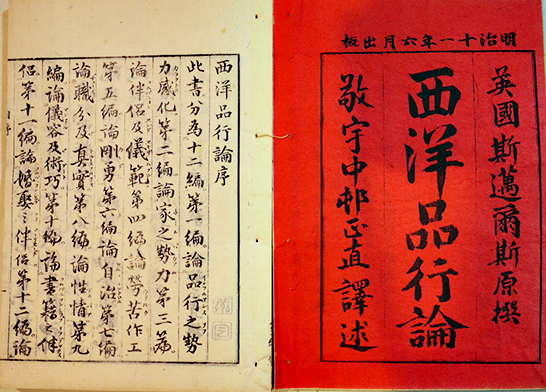 明治十一年六月出板
英國斯邁爾斯原撰
西洋品行論
敬宇中邨正直譯述
西洋品行論序
此書分為十二編第一編論品行之勢
力感化第二編論家之勢力第三篇
論伴侶及儀範第四編論勞苦作工
第五編論剛勇第六編論自治第七編
論職分及真實第八編論性情第九
編論儀容及術巧第十編論書籍之伴
侶第十一編論婚娶之伴侶第十二編論